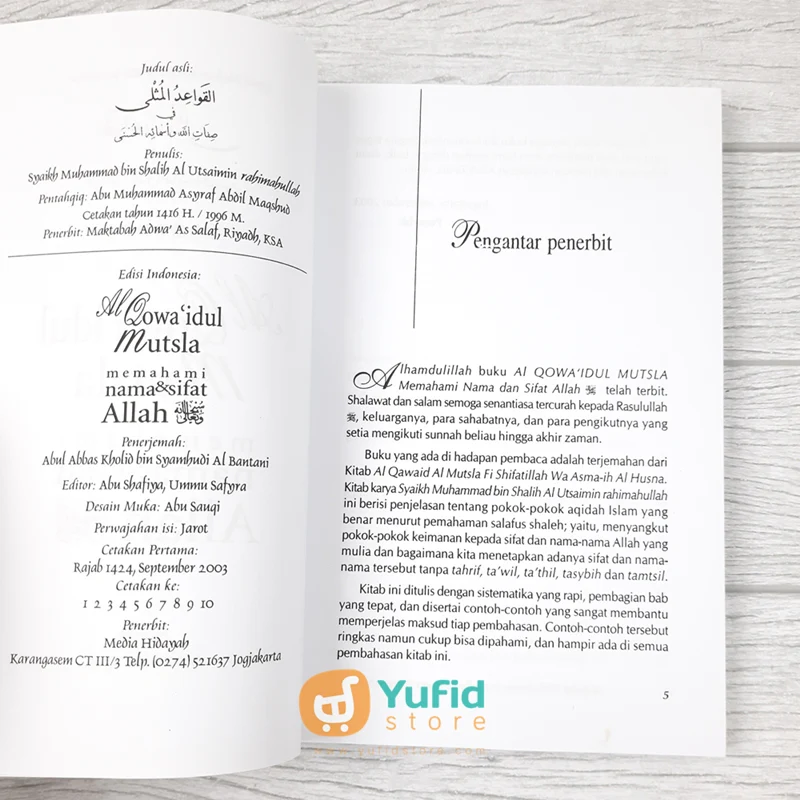 Judul asli:
القواعد المثلى
في
صفات الله وأسمائه الحسنى
Penulis:
Syaikh Muhammad bin Shalih Al Utsaimin rahimahullah
Pentahqiq: Abu Muhammad Asyraf Abdil Maqshud
Cetakan tahun 1416 H. / 1996 M.
Penerbit: Maktabah Adwa' As Salaf, Riyadh, KSA
Edisi Indonesia:
Al Qowa'idul
Mutsla
memahami
nama&sifat
Allah
Penerjemah:
Abul Abbas Kholid bin Syamhudi Al Bantani
Editor: Abu Shafiya, Ummu Safyra
Desain Muka: Abu Sauqi
Perwajahan isi: Jarot
Cetakan Pertama:
Rajab 1424, September 2003
Cetakan ke:
1 2 3 4 5 6 7 8 9 10
Penerbit:
Media Hidayah
Karangasem CT III/3 Telp. (0274) 521637 Jogjakarta
Pengantar penerbit
Alhamdulillah buku Al QOWA'IDUL MUTSLA
Memahami Nama dan Sifat Allah ﷻ telah terbit.
Shalawat dan salam semoga senantiasa tercurah kepada Rasulullah
ﷺ, keluarganya, para sahabatnya, dan para pengikutnya yang
setia mengikuti sunnah beliau hingga akhir zaman.
Buku yang ada di hadapan pembaca adalah terjemahan dari
Kitab Al Qawaid Al Mutsla Fi Shifatillah Wa Asma-ih Al Husna.
Kitab karya Syaikh Muhammad bin Shalih Al Utsaimin rahimahullah
ini berisi penjelasan tentang pokok-pokok aqidah Islam yang
benar menurut pemahaman salafus shaleh; yaitu, menyangkut
pokok-pokok keimanan kepada sifat dan nama-nama Allah yang
mulia dan bagaimana kita menetapkan adanya sifat dan nama-
nama tersebut tanpa tahrif, ta'wil, ta'thil, tasybih dan tamtsil.
Kitab ini ditulis dengan sistematika yang rapi, pembagian bab
yang tepat, dan disertai contoh-contoh yang sangat membantu
memperjelas maksud tiap pembahasan. Contoh-contoh tersebut
ringkas namun cukup bisa dipahami, dan hampir ada di semua
pembahasan kitab ini.
5
Yufid
store
www.yufidstore.com